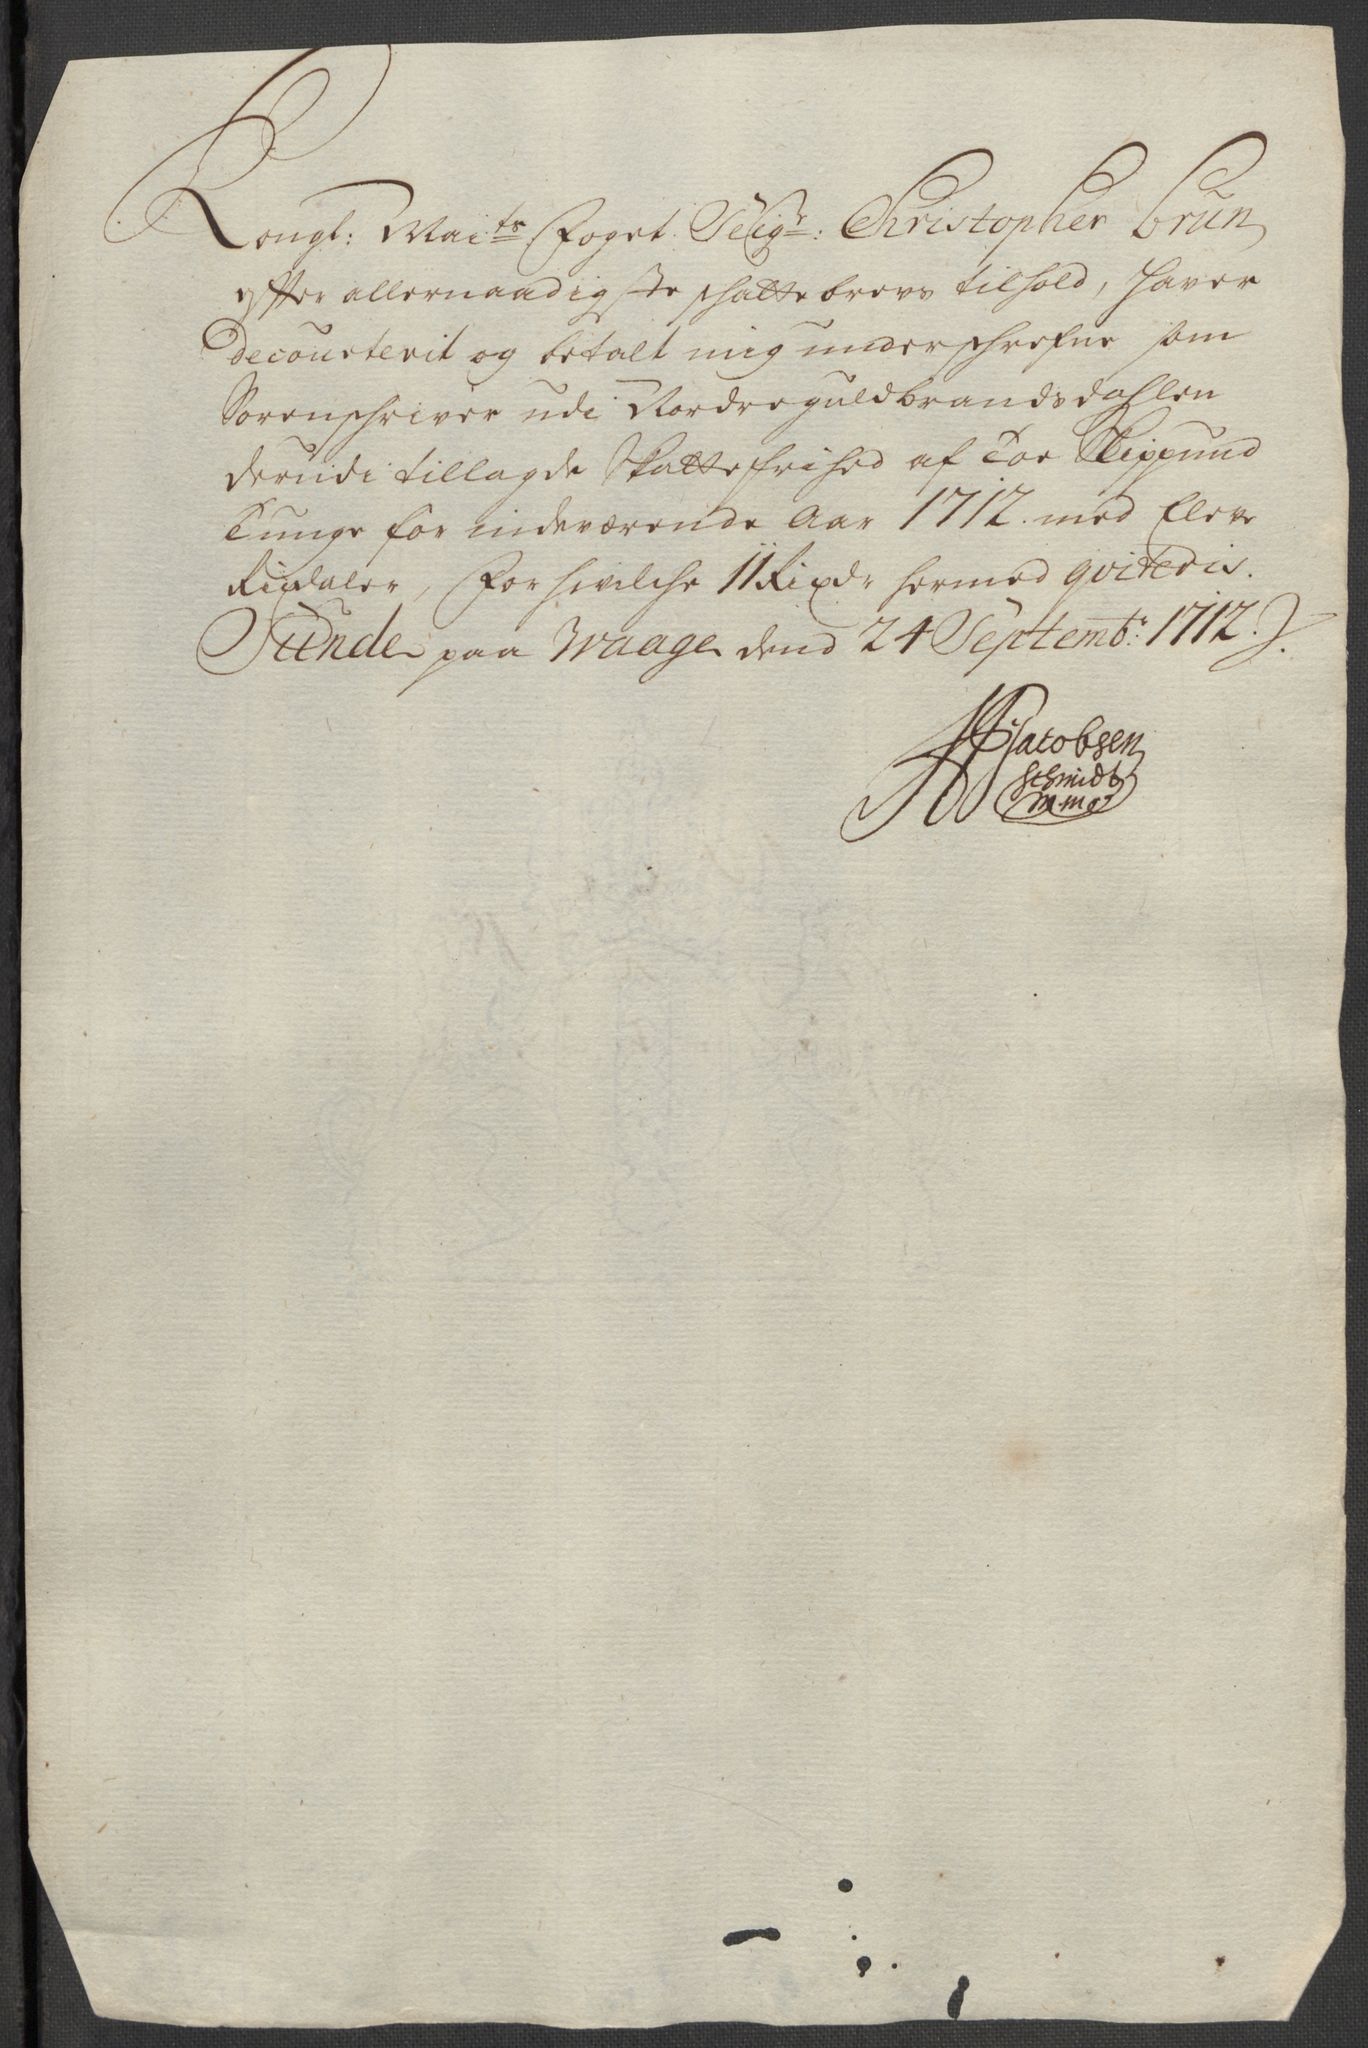 Kongl: Maits Foget Seigr: Christopher brun
efter allernaadigste schatte brevs tilhold, haver
decourterit og betalt mig underschrefne som
Sorenschriver udi Nordre guldbrandsdahlen
derudi tillagde Skatte frihed af toe Skippund
Tunge for indeværende Aar 1712. med Eleve
Rixdaler, for hvilche 11 Rixdr hermed qviteris.
Sünde paa Waage dend 24 Septembr: 1712.
Jacobsen
Schmidt
m.mp